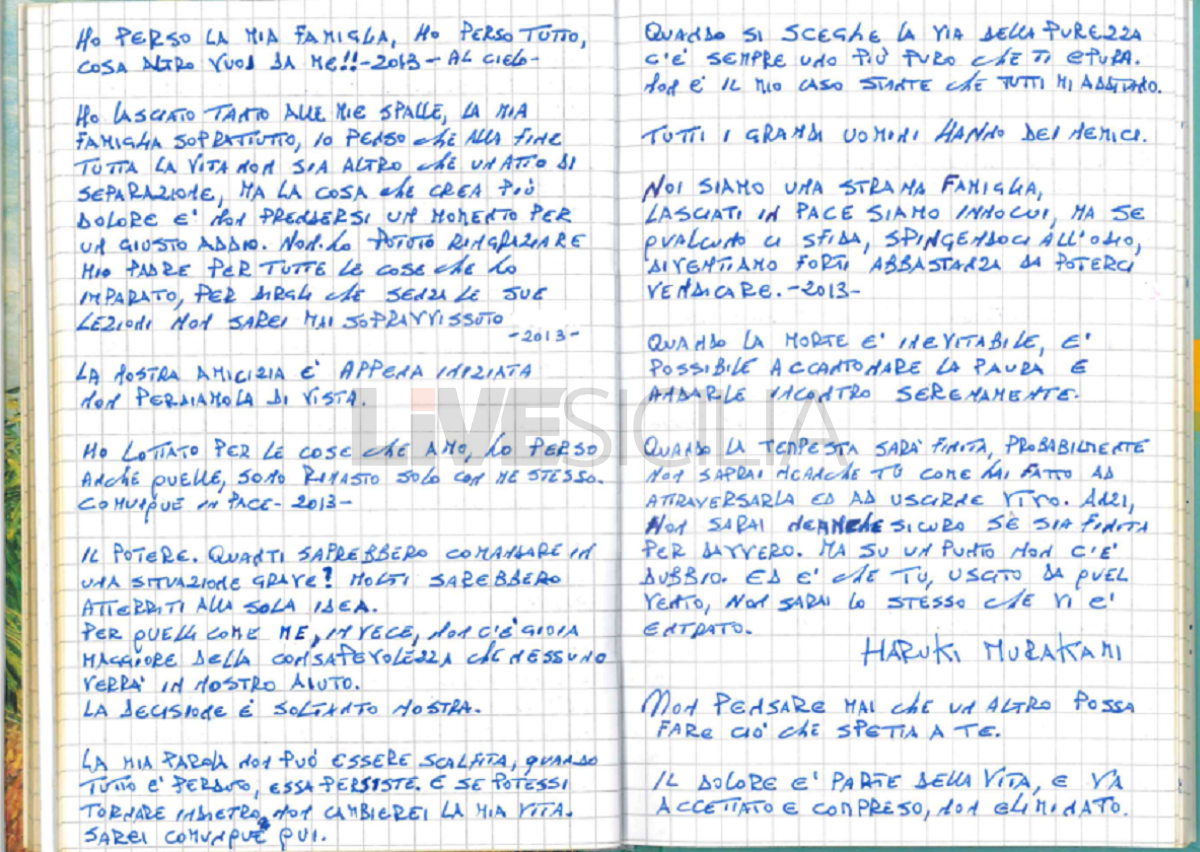 HO PERSO LA MIA FAMIGLIA, HO PERSO TUTTO,
COSA ALTRO VUOI DA ME!!-2013-AL CIELO-
HO LASCIATO TANTO ALLE MIE SPALLE, LA MIA
FAMIGLIA SOPRATTUTTO, IO PENSO CHE ALLA FINE
TUTTA LA VITA NON SIA ALTRO CHE UN ATTO DI
SEPARAZIONE, MA LA COSA CHE CREA PIÙ
DOLORE E' NON PRENDERSI UN MOMENTO PER
UN GIUSTO ADDIO. NON HO POTUTO RINGRAZIARE
MIO PADRE PER TUTTE LE COSE CHE HO
IMPARATO, PER DIRGLI CHE SENZA LE SUE
LEZIONI NON SAREI MAI SOPRAVVISSUTO
-2013-
LA NOSTRA AMICIZIA È APPENA INIZIATA
NON PERDIAMOLA DI VISTA.
HO LOTTATO PER LE COSE CHE AMO, HO PERSO
ANCHE QUELLE, SONO RIMASTO SOLO CON ME STESSO.
COMUNQUE IN PACE-2013-
IL POTERE. QUANTI SAPREBBERO COMANDARE IN
UNA SITUAZIONE GRAVE? MOLTI SAREBBERO
ATTERRITI ALLA SOLA IDEA.
PER QUELLI COME ME, INVECE, NON C'È GIOIA
MAGGIORE DELLA CONSAPEVOLEZZA CHE NESSUNO
VERRA' IN NOSTRO AIUTO.
LA DECISIONE È SOLTANTO NOSTRA.
LA MIA PAROLA NON PUÒ ESSERE SCALFITA, QUANDO
TUTTO E' PERDUTO, ESSA PERSISTE. E SE POTESSI
TORNARE INDIETRO, NON CAMBIEREI LA MIA VITA.
SAREI COMUNQUE QUI.
QUANDO SI SCEGLIE LA VIA DELLA PUREZZA
C'E' SEMPRE UNO PIÙ PURO CHE TI EPURA.
NON È IL MIO CASO STANTE CHE TUTTI MI ADDITANO.
TUTTI I GRANDI UOMINI HANNO DEI NEMICI.
NOI SIAMO UNA STRANA FAMIGLIA,
LASCIATI IN PACE SIAMO INNOCUI, MA SE
QUALCUNO CI SFIDA, SPINGENDOCI ALL'ODIO,
DIVENTIAMO FORTI ABBASTANZA DA POTERCI
VENDICARE.-2013-
QUANDO LA MORTE E' INEVITABILE, E'
POSSIBILE ACCANTONARE LA PAURA E
ANDARLE INCONTRO SERENAMENTE.
QUANDO LA TEMPESTA SARA' FINITA, PROBABILMENTE
NON SAPRAI NEANCHE TU COME HAI FATTO AD
ATTRAVERSARLA ED AD USCIRNE VIVO. ANZI,
NON SARAI NEANCHE SICURO SE SIA FINITA
PER DAVVERO. MA SU UN PUNTO NON C'E'
DUBBIO. ED E' CHE TU, USCITO DA QUEL
VENTO, NON SARAI LO STESSO CHE VI E'
ENTRATO.
HARUKI MURAKAMI
NON PENSARE MAI CHE UN ALTRO POSSA
FARE CIÒ CHE SPETTA A TE.
IL DOLORE E' PARTE DELLA VITA, E VA
ACCETTATO E COMPRESO, NON ELIMINATO.
LIVESICILIA